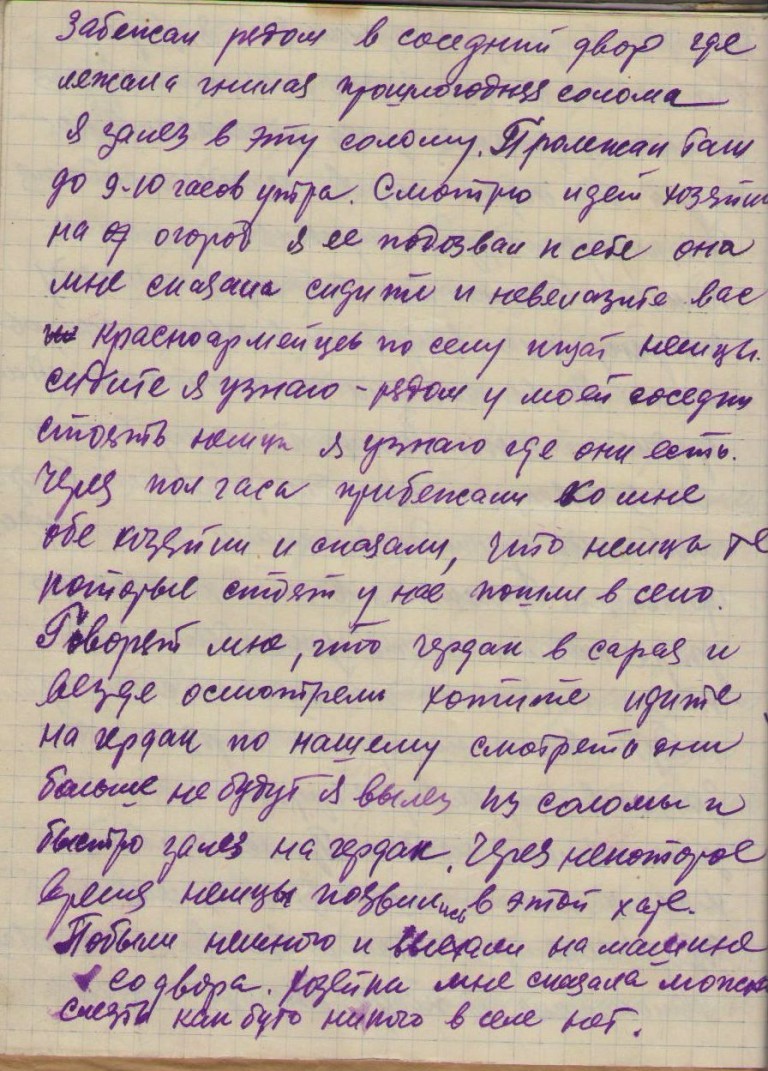 Забежал рядом в соседний двор где
лежала гнилая прошлогодняя солома
я залез в эту солому. Пролежал там
до 9-10 часов утра. Смотрю идет хозяйка
на огород я ее подозвал к себе она
мне сказала сидите и невелазите вас
красноармейцев по селу ищат немцы.
сидите я узнаю - рядом у моей соседки
стоять немцы я узнаю где они есть.
Через пол часа прибежали ко мне
обе хозяйки и сказали, что немцы те
которые стоят у нее пошли в село.
Говорят мне, что чердак в сарая и
везде осмотрели хотите идите
на чердак по нашему смотреть они
больше не будут я вылез из соломы и
быстро залез на чердак. Через некоторое
время немцы появились в этой хате.
Побыли немного и выехали на машине
со двора. Хозяйка мне сказала можно
слезть как буто никого в селе нет.